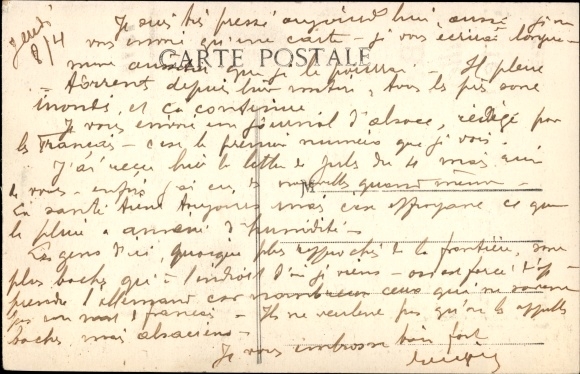 Jeudi
8/4
Je suis très pressé aujourd'hui, aussi je ne
vous envoie qu'une carte – je vous écrirai longue-
CARTE POSTALE
ment aussitôt que je le pourrai – Il pleut
à torrent depuis hier matin, tous les prés sont
inondés, et ça continue
Je vous envoie un journal d'alsace, rédigé par
les Français – c'est le premier numéro que je vois.
J'ai reçu hier la lettre de Juls du 4 mais rien
de vous – enfin, j'ai eu des nouvelles quand même –
M
La santé tient toujours mais c'est effroyable ce que
la pluie a amené d'humidité –
Les gens d'ici, quoique plus rapprochés de la frontière, sont
plus boches qu'à l'endroit d'où je viens – on est forcé d'ap-
prendre l'allemand car nombreux ceux qui ne savent
pas un mot de français – Ils ne veulent pas qu'on les appelle
boches, mais alsaciens –
Je vous embrasse bien fort